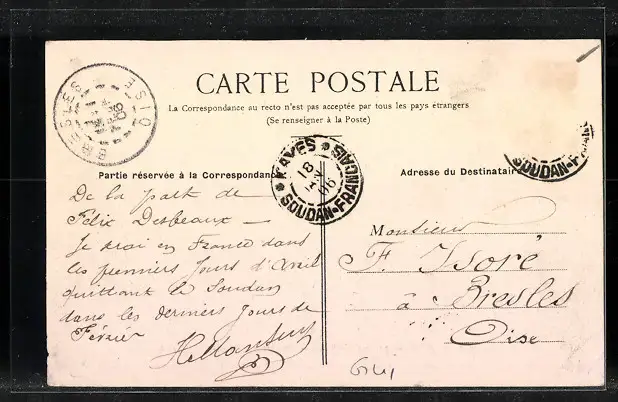 CARTE POSTALE
La Correspondance au recto n'est pas acceptée par tous les pays étrangers
(Se renseigner à la Poste)
BRESLES
OISE
KAYES
SOUDAN-FRANÇAIS
18
06
SOUDAN-FRANÇ
Partie réservée à la Correspondance
De la part de
Félix Desbeaux —
Je serai en France dans
les premiers Jours d'Avril
quittant le Soudan
dans les derniers Jours de
Février
Adresse du Destinataire
Monsieur
F. Ysoré
à Bresles
Oise